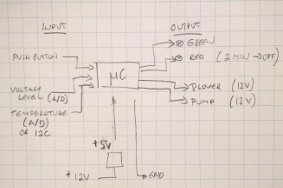 INPUT
OUTPUT
PUSH BUTTON
GREEN
RED (2 MIN → OFF)
VOLTAGE
LEVEL (A/D)
µC
TEMPERATURE
(A/D)
OR I2C
(12V)
PUMP (12V)
+5V
+12V
GND